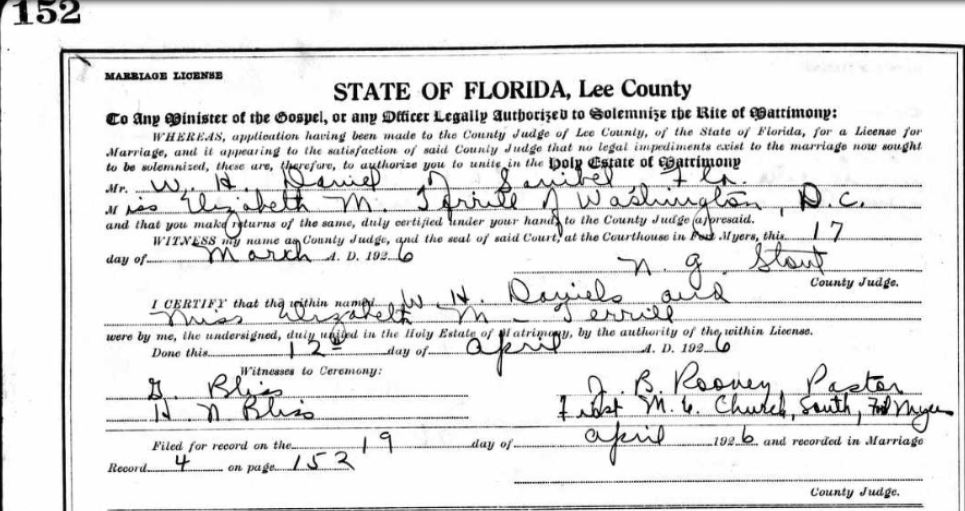 152
MARRIAGE LICENSE
STATE OF FLORIDA, Lee County
To Any Minister of the Gospel, or any Officer Legally Authorized to Solemnize the Rite of Matrimony:
WHEREAS, application having been made to the County Judge of Lee County, of the State of Florida, for a License for
Marriage, and it appearing to the satisfaction of said County Judge that no legal impediments exist to the marriage now sought
to be solemnized, these are, therefore, to authorize you to unite in the Holy Estate of Matrimony
Mr. W. H. Daniel of Sanibel Fla.
Miss Elizabeth M. Terrill of Washington, D.C.
and that you make returns of the same, duly certified under your hand, to the County Judge aforesaid.
WITNESS my name as County Judge, and the seal of said Court, at the Courthouse in Fort Myers, this 17
day of March A. D. 1926
N. G. Stout
County Judge.
I CERTIFY that the within named W. H. Daniels and
Miss Elizabeth M. Terrill
were by me, the undersigned, duly united in the Holy Estate of Matrimony, by the authority of the within License.
Done this 12 day of April A. D. 1926
Witnesses to Ceremony:
G. Bliss J. B. Rooney, Pastor
H N Bliss First M. E. Church, South, Ft Myers
Filed for record on the 19 day of April 1926 and recorded in Marriage
Record 4 on page 152
County Judge.